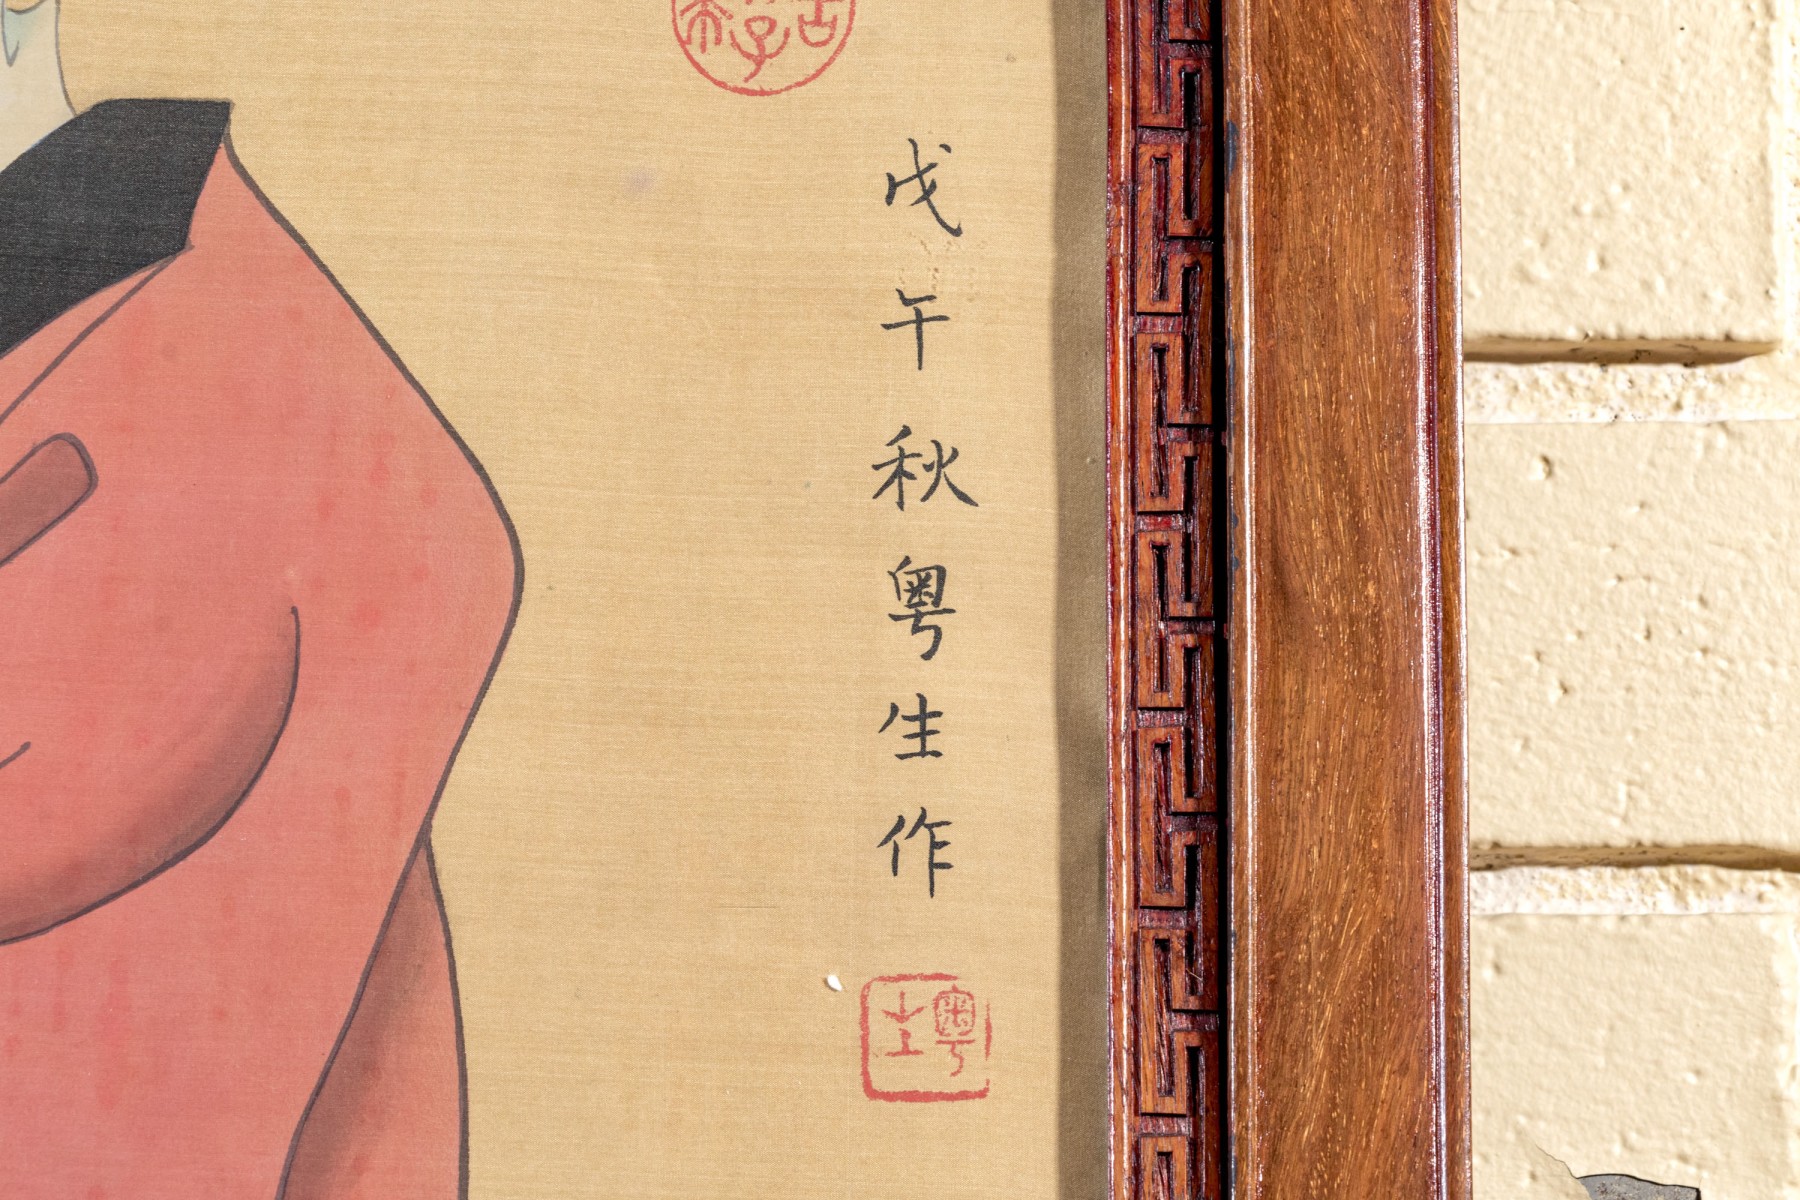 戊午秋粤生作
粤生